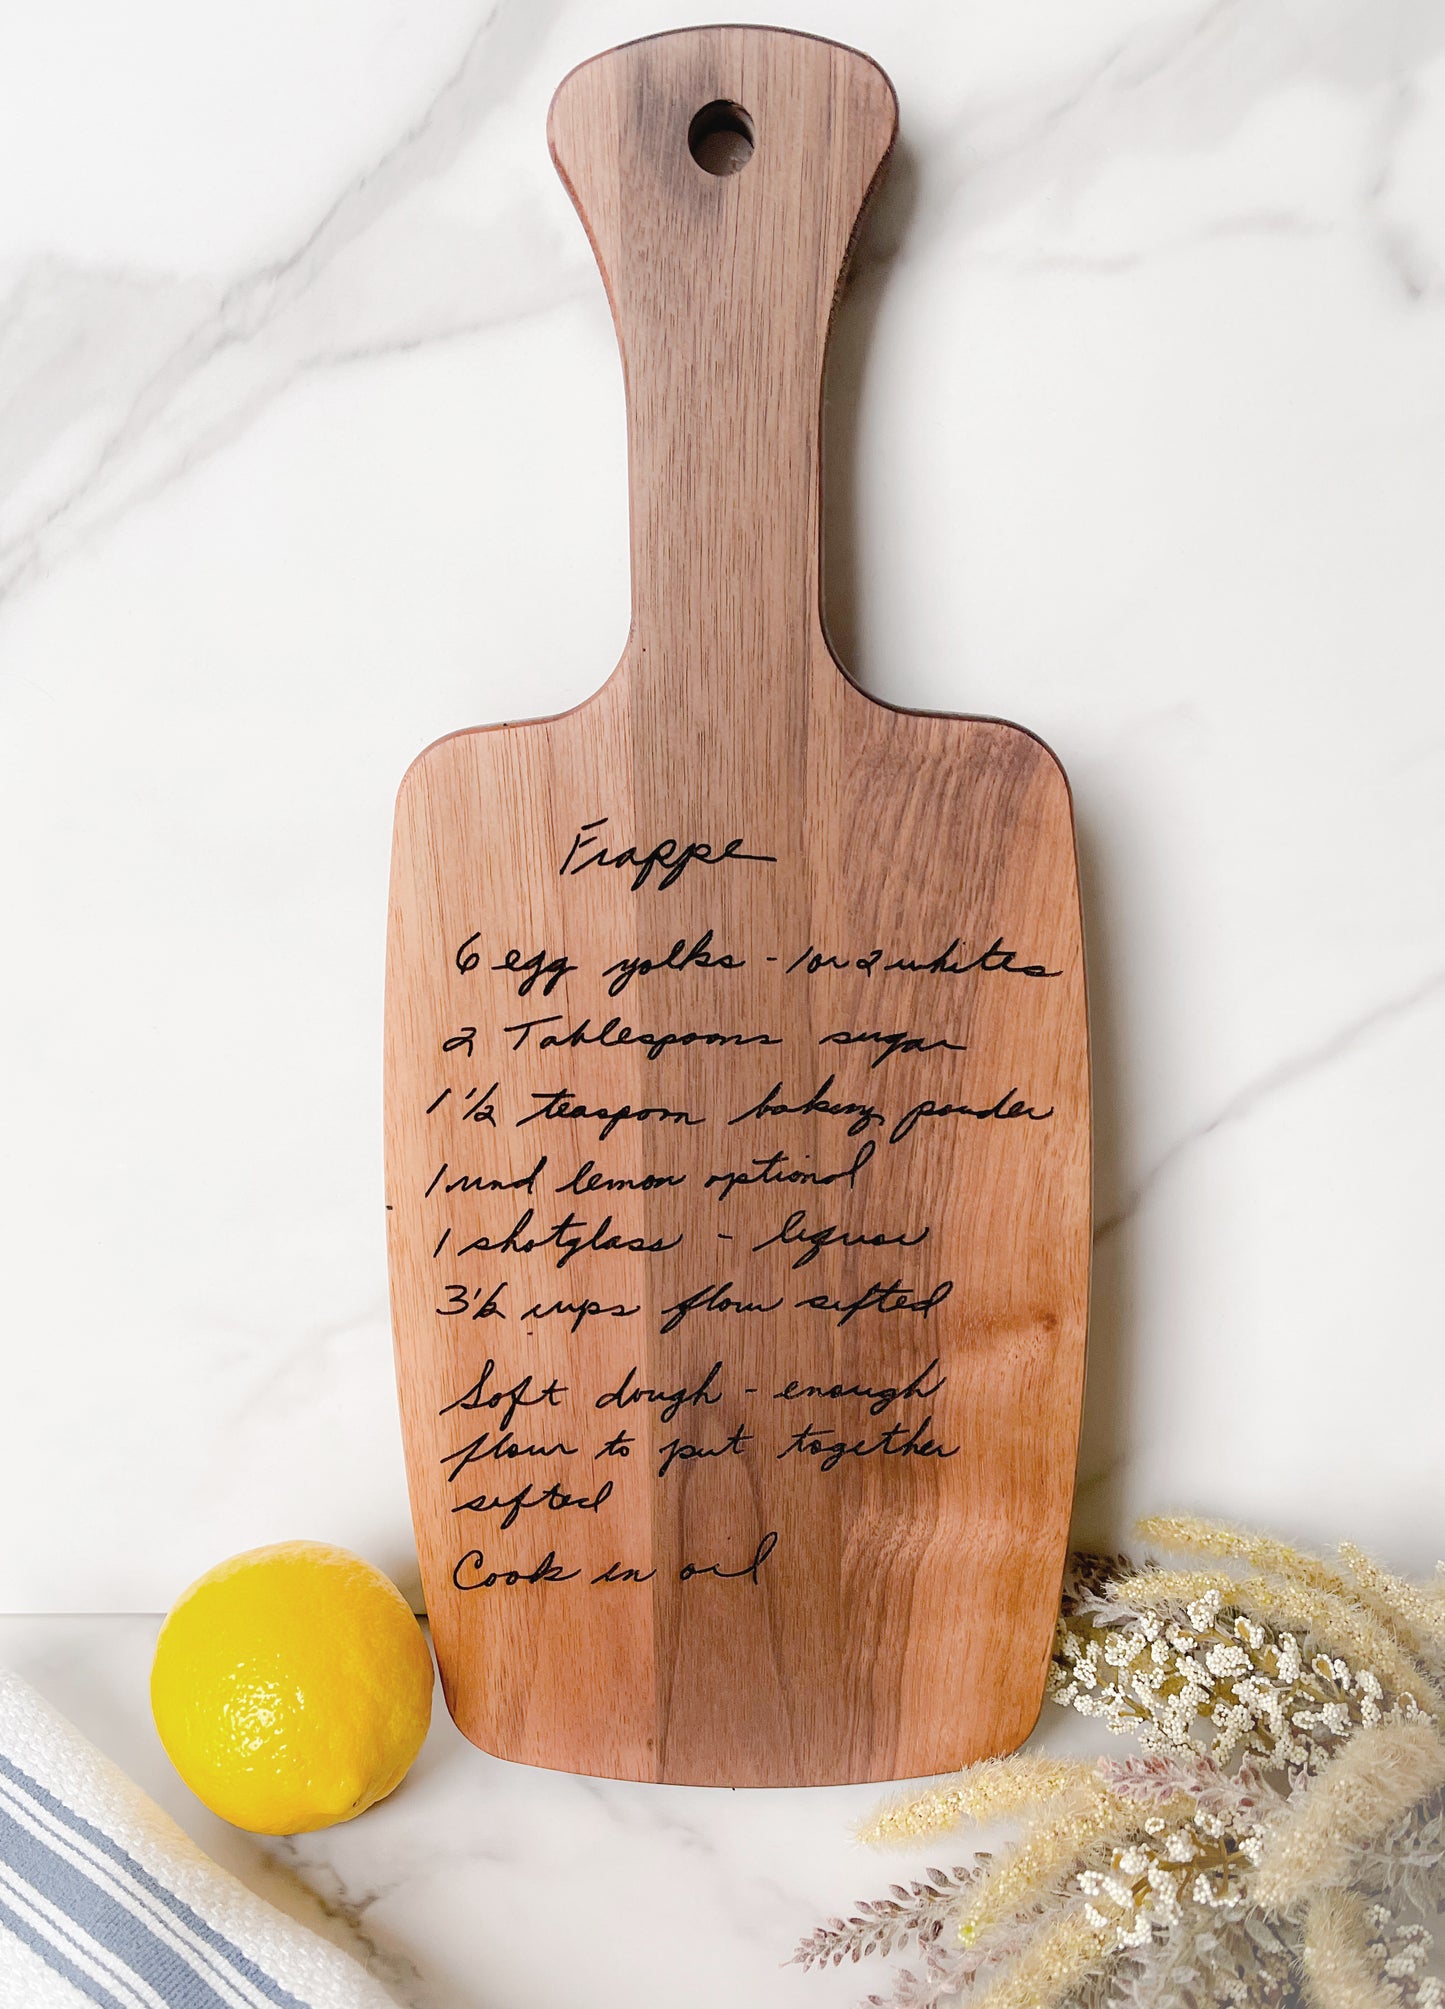 Frappe
6 egg yolks - 1 or 2 whites
2 Tablespoons sugar
1 1/2 teaspoon baking powder
1 rind lemon optional
1 shotglass - liquor
3 1/2 cups flour sifted
Soft dough - enough
flour to put together
sifted
Cook in oil